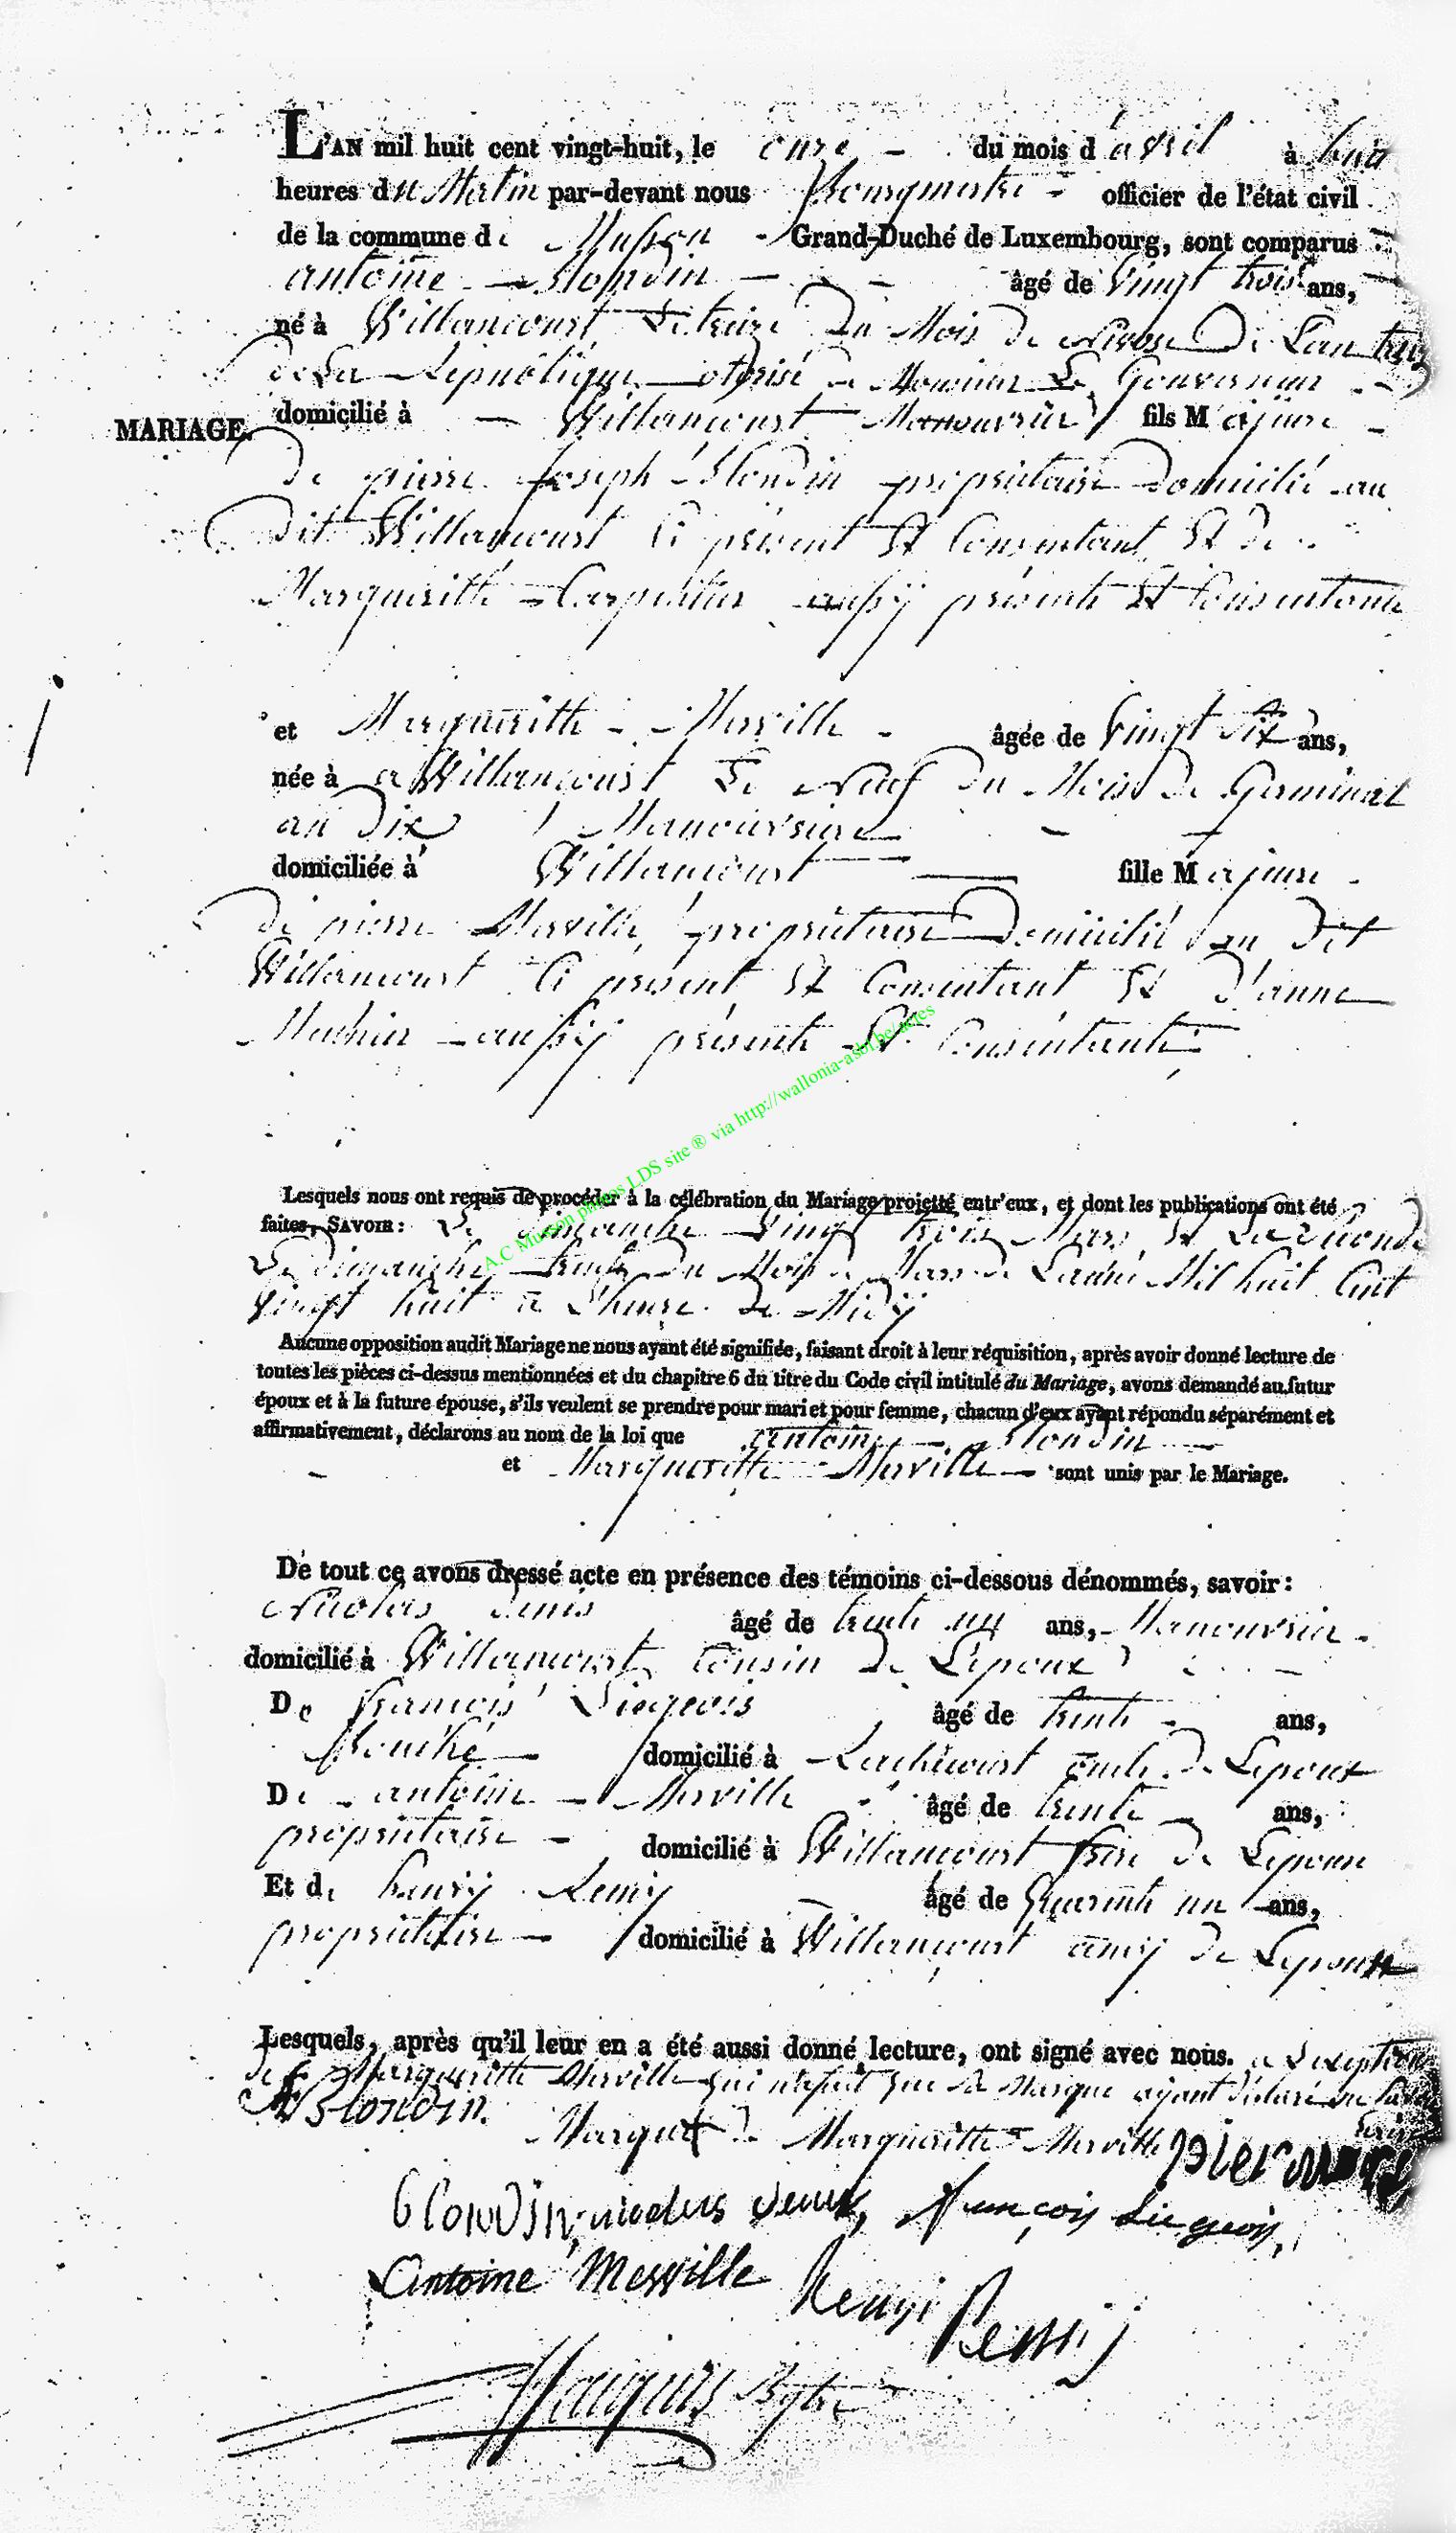 L'AN mil huit cent vingt-huit, le onze du mois d'avril à huit
heures du Matin par-devant nous Bourgmestre officier de l'état civil
de la commune de Musson Grand-Duché de Luxembourg, sont comparus
antoine Blondin âgé de Vingt trois ans,
né à Willancourt Le treize Du Mois de Nivose De L'an treize
de La Republique autorisé de Monsieur Le Gouverneur
MARIAGE. domicilié à Willancourt Manouvrier fils Majeure
De pierre Joseph Blondin propriétaire Domicilié au
Dit Willancourt Ci présent Et Consentant Et De
Marguerithe Carpentier aussÿ présente Et Consentante
et Marguerithe Merville âgée de Vingt six ans,
née à a Willancourt Le Neuf Du Mois De Germinal
an Dix Manouvriere
domiciliée à Willancourt fille Majeure
De pierre Merville propriétaire Domicilié au Dit
Willancourt Ci présent Et Consentant Et D'anne
Mathieu aussÿ présente Et Consentante
A.C Musson photos LDS site ® via http://wallonia-asbl.be/actes
Lesquels nous ont requis de procéder à la célébration du Mariage projetté entr'eux, et dont les publications ont été
faites, SAVOIR: Le dimanche Vingt trois Mars Et La Seconde
Le dimanche trente Du Mois de Mars de L'année Mil huit Cent
Vingt huit a L'heure de Midÿ
Aucune opposition audit Mariage ne nous ayant été signifiée, faisant droit à leur réquisition, après avoir donné lecture de
toutes les pièces ci-dessus mentionnées et du chapitre 6 du titre du Code civil intitulé du Mariage, avons demandé au futur
époux et à la future épouse, s'ils veulent se prendre pour mari et pour femme, chacun d'eux ayant répondu séparément et
affirmativement, déclarons au nom de la loi que antoine Blondin
et Marguerithe Merville sont unis par le Mariage.
De tout ce avons dressé acte en présence des témoins ci-dessous dénommés, savoir:
Nicolas Denis âgé de trente un ans, Manouvrier
domicilié à Willancourt Cousin De L'epoux
De francois Liegeois âgé de trente ans,
domicilié à Rachecourt oncle De Lepoux
De antoine Merville âgé de trente ans,
propriétaire domicilié à Willancourt frere De Lepouse
Et de henrÿ Remÿ âgé de Quarente un ans,
propriétaire domicilié à Willancourt amÿ De Lepoux
Lesquels, après qu'il leur en a été aussi donné lecture, ont signé avec nous. a L'exception
de Marguerithe Merville qui n'a fait que sa Marque ayant déclaré ne savoir
Ecrire
A Blondin. Marque De Marguerithe Merville
blondin nicolas denis françois Liegeois
Antoine Merville Henri Remij